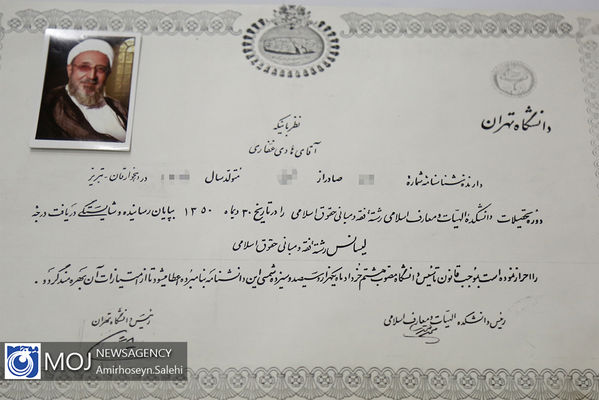 دانشگاه تهران
نظر باینکه
آقای هادی غفاری
دارنده شناسنامه شماره صادر از متولد سال در هجوارقان - تبریز
دوره تحصیلات دانشکده الهیات و معارف اسلامی رشته فقه و مبانی حقوق اسلامی را در تاریخ ۳۰ دیماه ۱۳۵۰ بپایان رسانیده و شایستگی دریافت درجه
لیسانس رشته فقه و مبانی حقوق اسلامی
را احراز نموده است بموجب قانون تأسیس دانشگاه مصوب هشتم خرداد ماه یکهزار و سیصد و سیزده شمسی این دانشنامه بنامبرده اعطا میشود تا از امتیازات آن بهره‌مند گردد.
رئیس دانشکده الهیات و معارف اسلامی
رئیس دانشگاه تهران
MOJ NEWSAGENCY
Amirhoseyn.Salehi